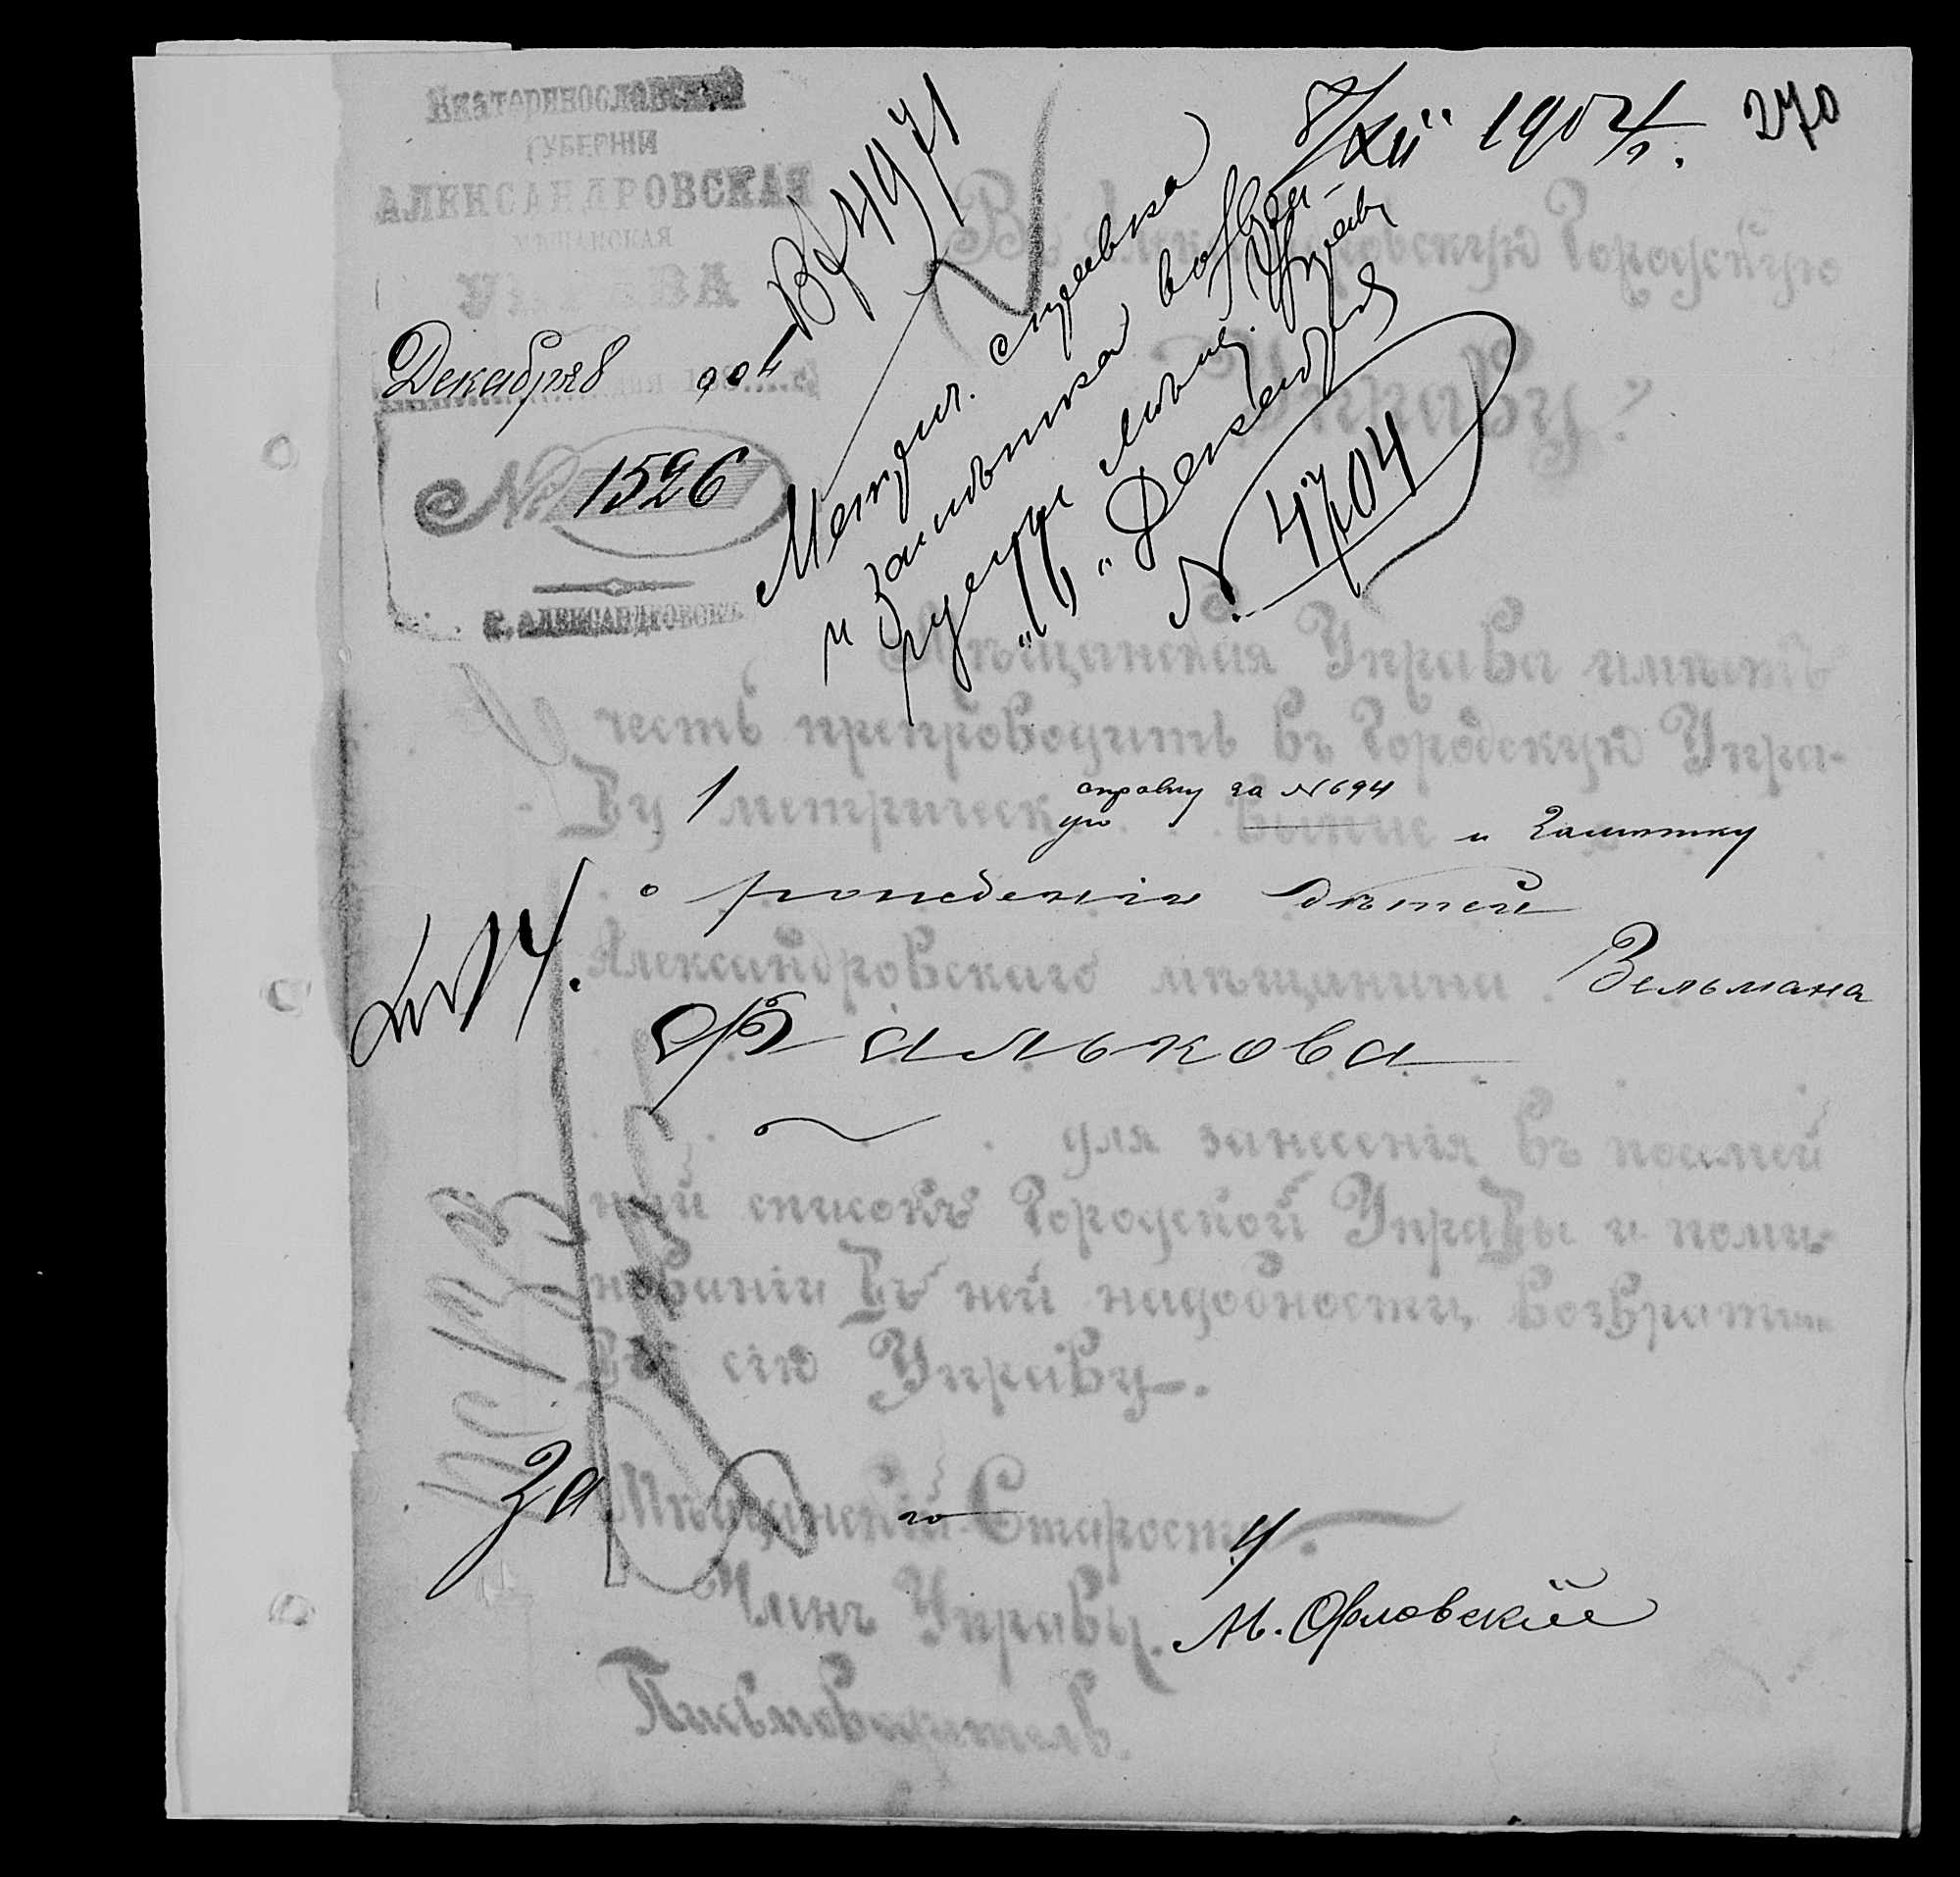 Екатеринославской
ГУБЕРНІИ
АЛЕКСАНДРОВСКАЯ
МѢЩАНСКАЯ
УПРАВА
Декабря 8 дня 1904
№ 1526
Г. АЛЕКСАНДРОВСКЪ
8/XII 1904 г.
270
Вх 4971
Метрич. справка
и замѣтка возвра-
№ 4704
Въ Александровскую Городскую
Управу.
Мѣщанская Управа имѣетъ
честь препроводить въ Городскую Упра-
ву 1 метрическую справку за № 694 и замѣтку
о рожденіи дѣтей
Александровскаго мѣщанина Вельмана
Фалькова
для занесенія въ посемей
ный списокъ Городской Управы и поми-
нованіи въ ней надобности, возвратить
въ сію Управу.
За Мѣщанскаго Старосту
Членъ Управы. М. Орловскій
Письмоводитель.